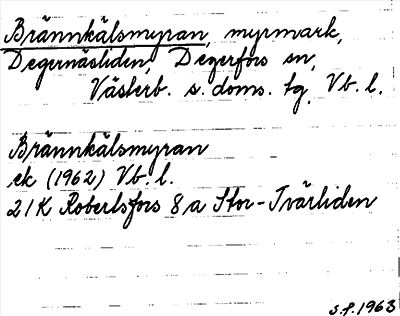 Brännkälsmyran, myrmark,
Degernäsliden, Degerfors sn,
Västerb. s. doms. tg. Vb. l.
Brännkälsmyran
ek (1962) Vb. l.
21K Robertsfors 8a Stor-Tvärliden
S.f. 1963